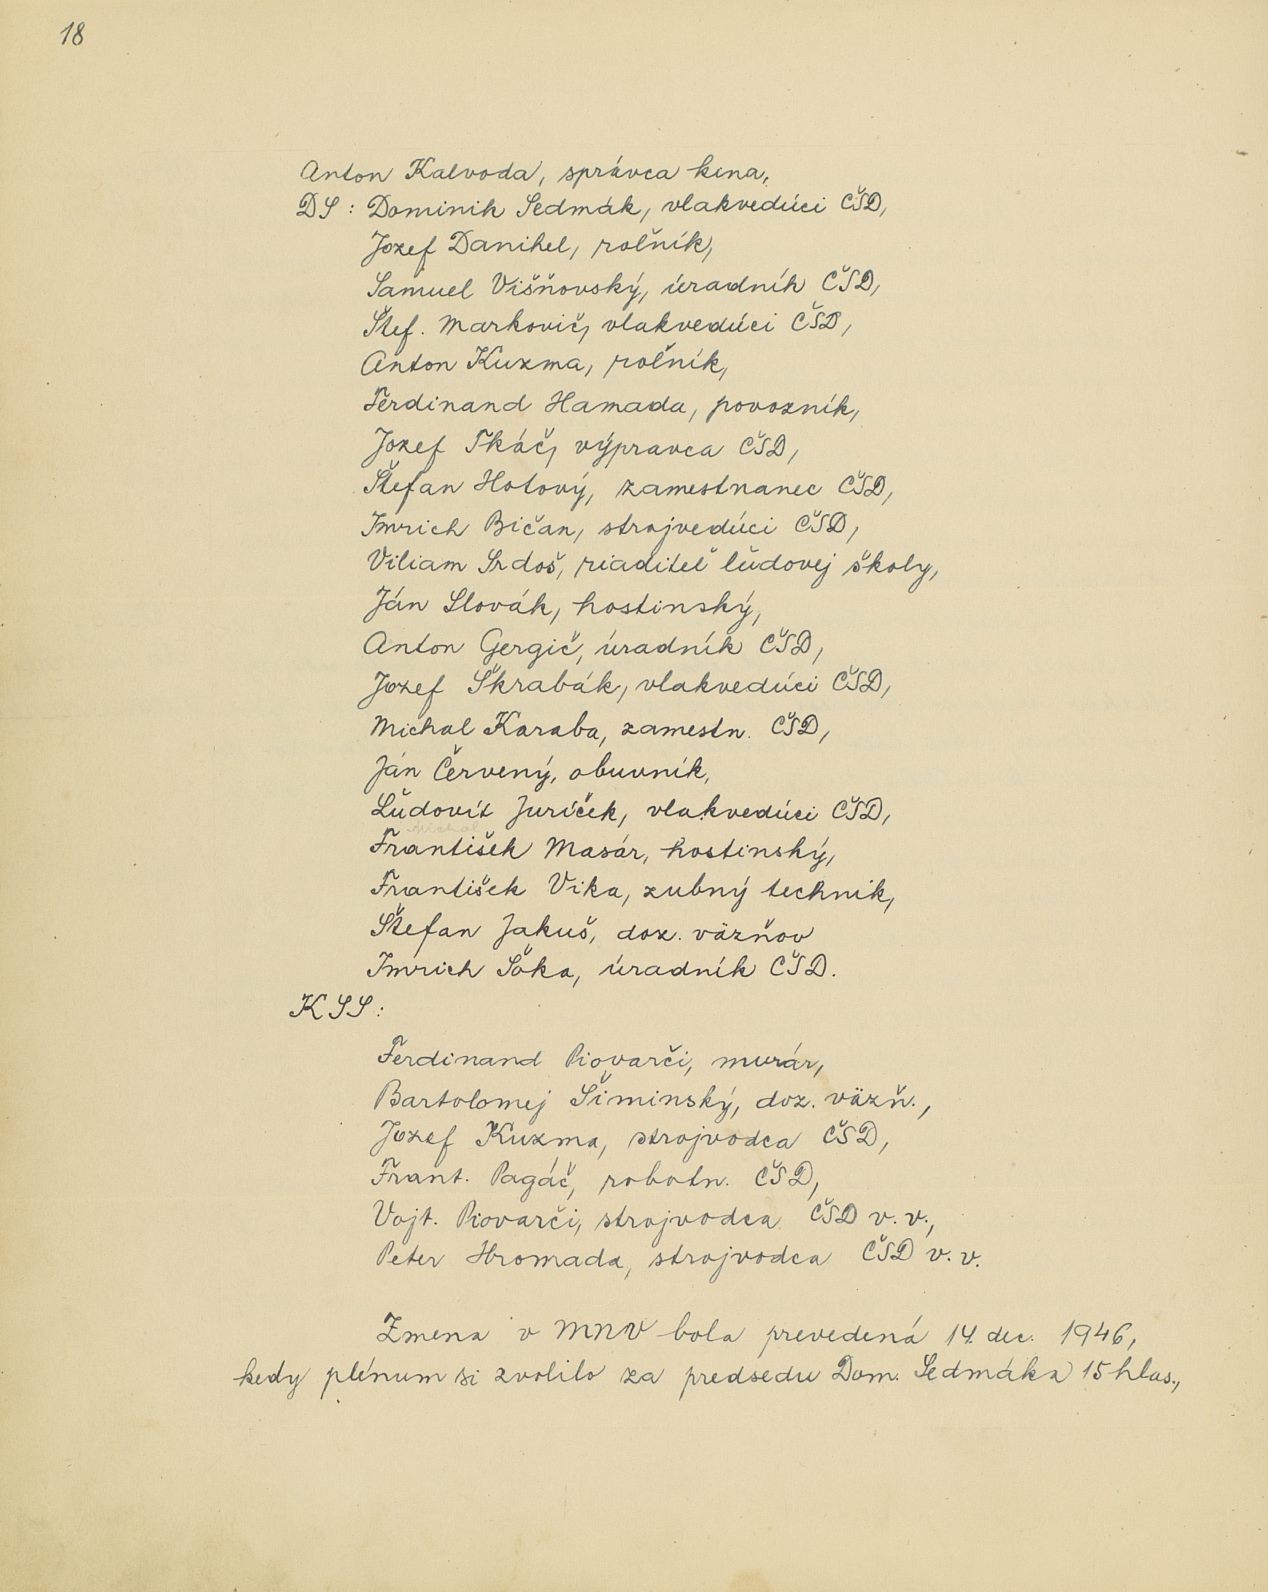 18
Anton Kalvoda, správca kina,
DS: Dominik Sedmák, vlakvedúci ČSD,
Jozef Danihel, roľník,
Samuel Višňovský, úradník ČSD,
Štef. Markovič, vlakvedúci ČSD,
Anton Kuzma, roľník,
Ferdinand Hamada, povozník,
Jozef Tkáč, výpravca ČSD,
Štefan Hotový, zamestnanec ČSD,
Imrich Bičan, strojvedúci ČSD,
Viliam Srdoš, riaditeľ ľudovej školy,
Ján Slovák, hostinský,
Anton Gergič, úradník ČSD,
Jozef Škrabák, vlakvedúci ČSD,
Michal Karaba, zamestn. ČSD,
Ján Červený, obuvník,
Ľudovít Juríček, vlakvedúci ČSD,
Michal
František Masár, hostinský,
František Vika, zubný technik,
Štefan Jakuš, doz. väzňov
Imrich Šóka, úradník ČSD.
KSS:
Ferdinand Piovarči, murár,
Bartolomej Šiminský, doz. väzň.,
Jozef Kuzma, strojvodca ČSD,
Frant. Pagáč, robotn. ČSD,
Vojt. Piovarči, strojvodca ČSD v. v.,
Peter Hromada, strojvodca ČSD v. v.
Zmena v MNV bola prevedená 14. dec. 1946,
kedy plénum si zvolilo za predsedu Dom. Sedmáka 15 hlas.,